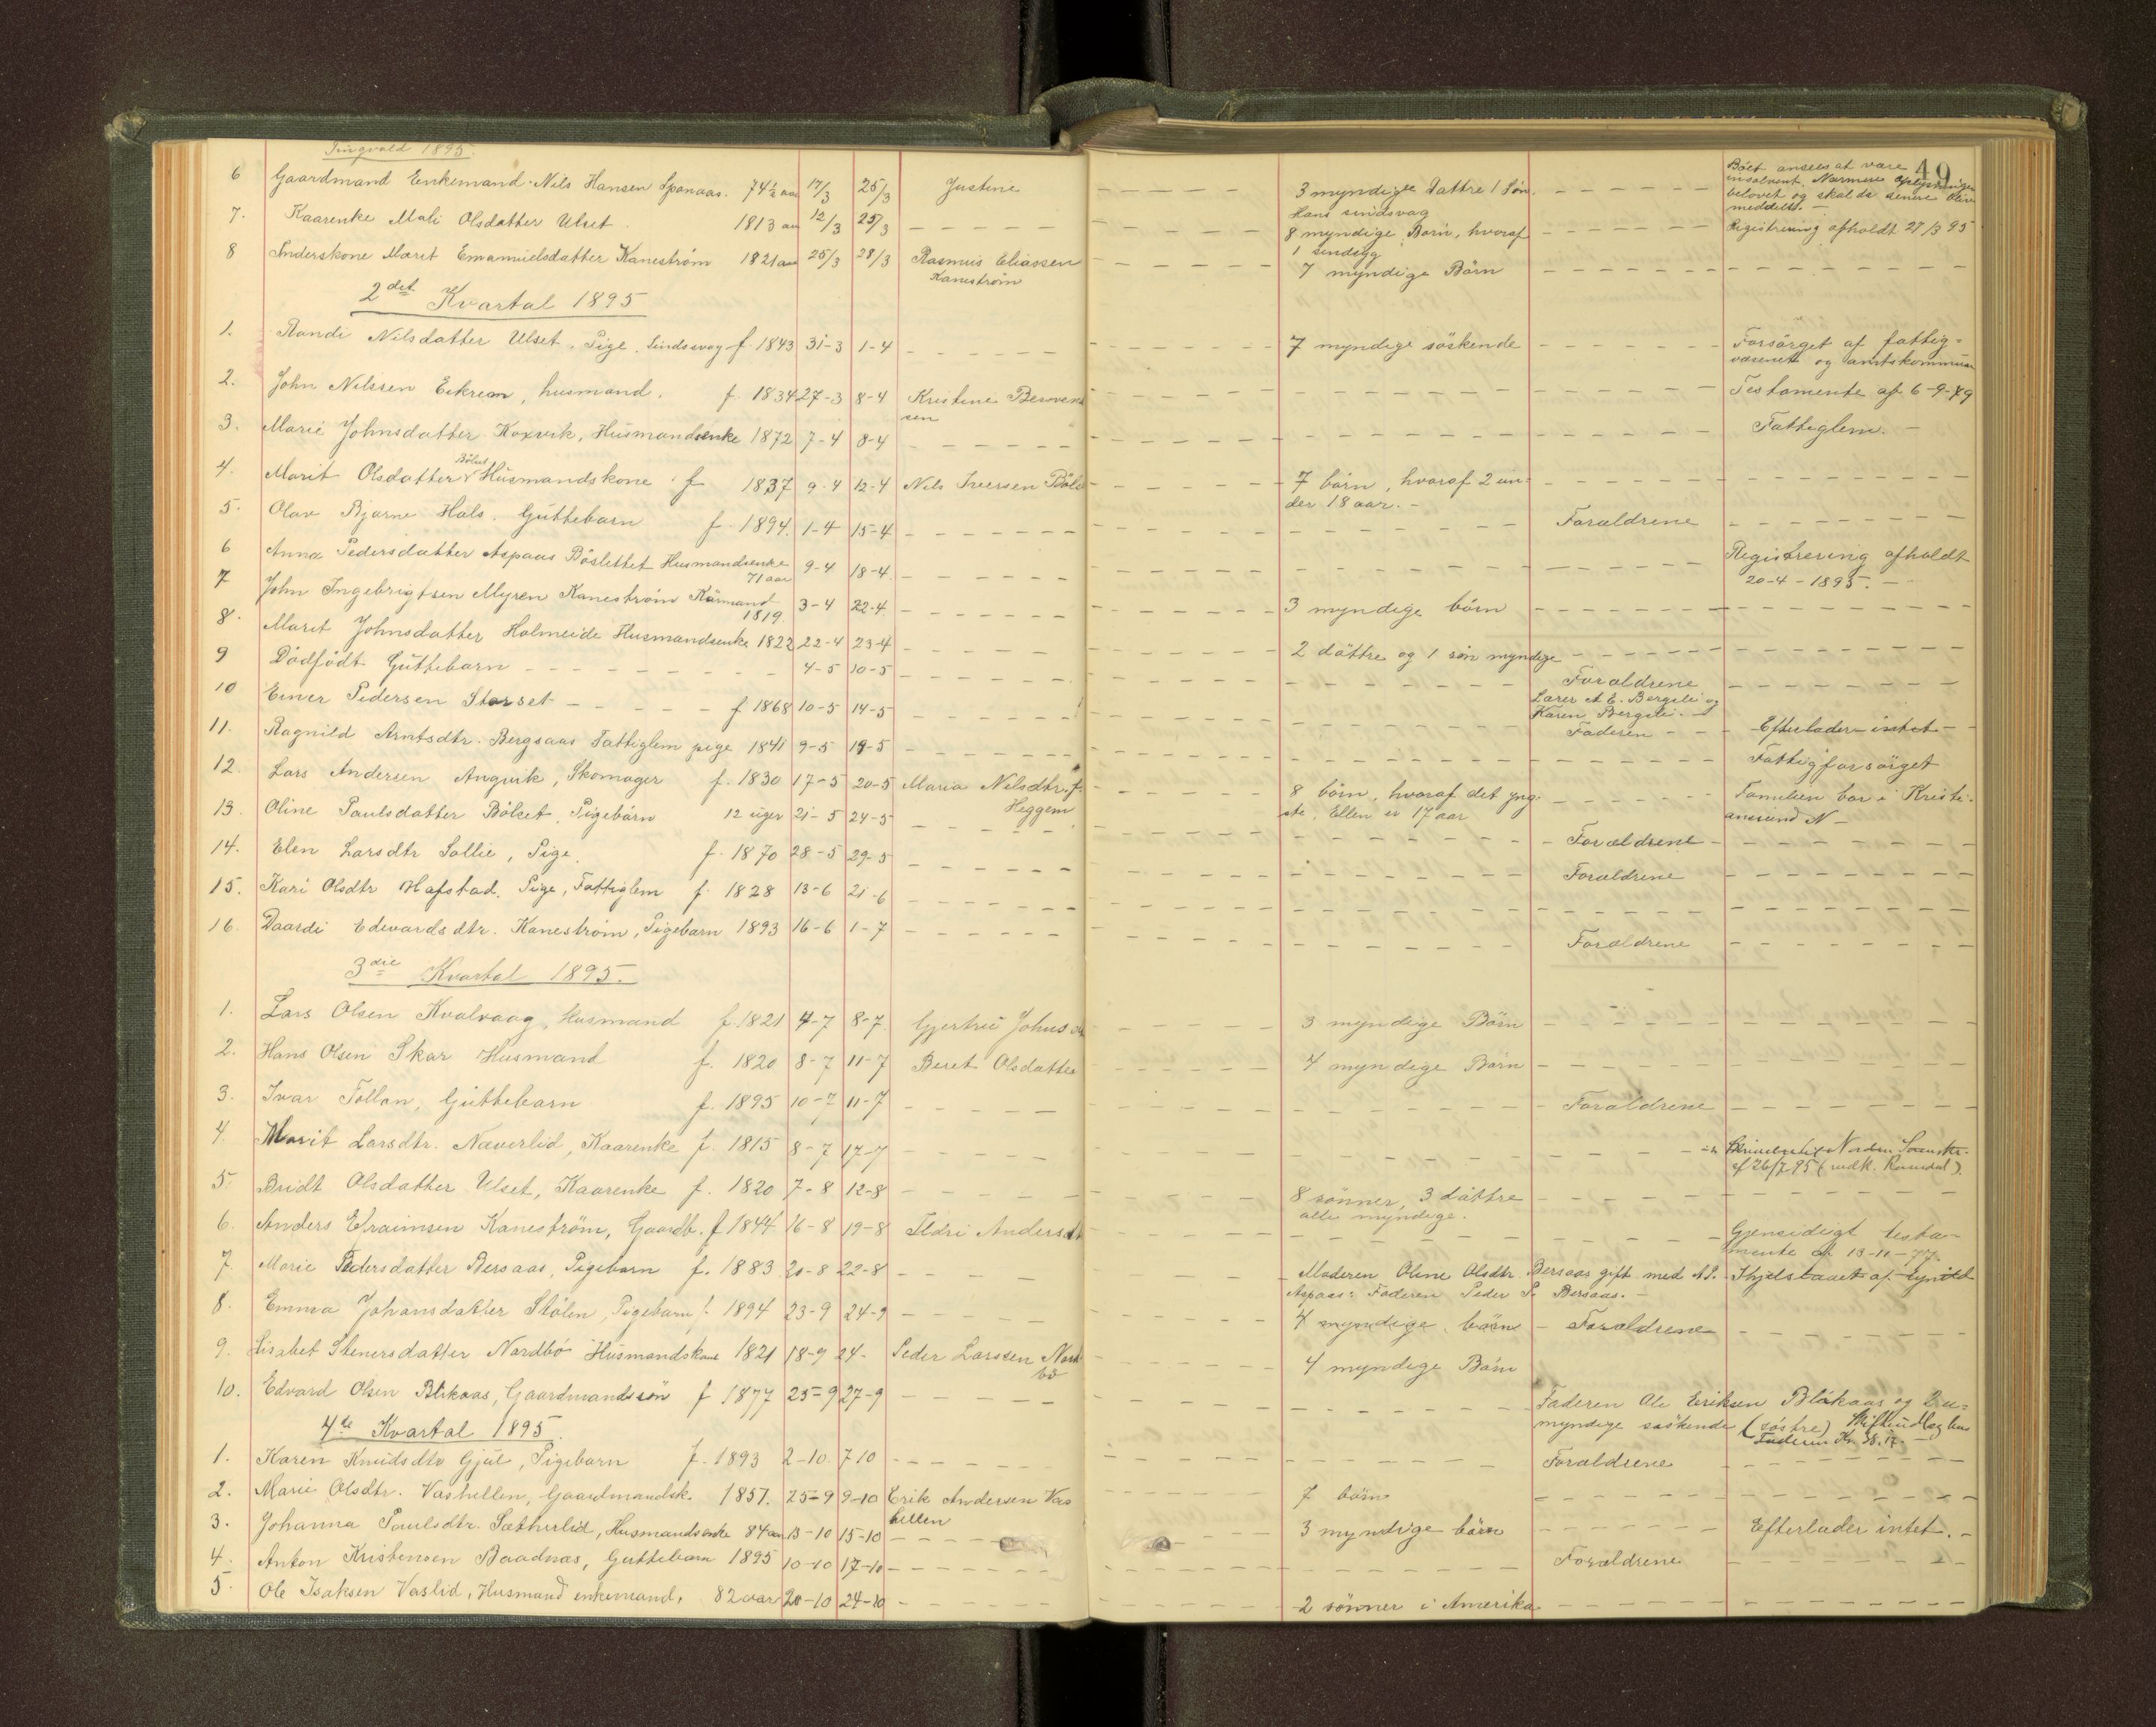 Tingvold 1895.
49
6 Gaardmand Enkemand Nils Hansen Spanaas. 74½ aar 17/3 25/3 Justine 3 myndige Døttre 1 Søn Hans sindsvag Böet ansees at være insolvent. Nærmere Oplysninger belovet og skal de senere blive meddelt. —
7. Kaarenke Mali Olsdatter Ulset 1813 aar 12/3 25/3 8 myndige Børn, hvoraf 1 sindsyg Registrering afholdt 27/3 95
8 Inderskone Marit Emanuelsdatter Kanestrøm 1821 aar 25/3 28/3 Rasmus Eliassen Kanestrøm 7 myndige Børn
2det Kvartal 1895
1. Randi Nilsdatter Ulset, Pige, Sindssvag f. 1843 31-3 1-4 7 myndige søskende Forsørget af fattigvæsenet og amtskommunen
2. John Nilssen Eikrem, husmand. f. 1834 27-3 8-4 Kristine Berven sen Testamente af 6-9-89
3. Marie Johnsdatter Koxvik, Husmandsenke 1872 7-4 8-4 Fattiglem. —
4. Marit Olsdatter Bölset Husmandskone f 1837 9-4 12-4 Nils Iversen Böls 7 børn, hvoraf 2 under 18 aar. -
5. Olav Bjarne Hals. Guttebarn f. 1894. 1-4 15-4 Forældrene
6 Anna Pedersdatter Aspaas Böslettet Husmandsenke 71 aar 9-4 18-4. Registrering afholdt 20-4-1895. —
7 John Ingebrigtsen Myren Kanestrøm Kaarmand 1819. 3-4 22-4. 3 myndige børn
8. Marit Johnsdatter Holmeide Husmandsenke 1822 22-4 23-4 2 døttre og 1 søn myndige
9 Dødfødt Guttebarn 4-5 10-5 Forældrene Lærer A E. Bergsli og Karen Bergsli. —
10 Einer Pedersen Storset f 1868 10-5 14-5 Faderen - - Efterlader intet -
11. Ragnild Arntsdtr. Bergsaas Fattiglem pige 1841 9-5 19-5 Fattigforsørget
12. Lars Andersen Angvik, Skomager f. 1830 17-5 20-5 Maria Nilsdtr. f. Heggem 8 børn, hvoraf det yngste, Ellen er 17 aar Familien bor i Kristiansund N —
13. Oline Paulsdatter Bölset, Pigebarn 12 uger 21-5 24-5 Forældrene
14. Elen Larsdtr Sollie, Pige. f. 1870 28-5 29-5 Forældrene
15. Kari Olsdtr Hafstad. Pige, Fattiglem f. 1828 13-6 21-6
16. Daardi Edvardsdtr. Kanestrøm, Pigebarn 1893 16-6 1-7 Forældrene
3die Kvartal 1895.
1. Lars Olsen Kvalvaag, Husmand f. 1821 4-7 8-7. Gjertru Johns 3 myndige Børn
2. Hans Olsen Skar Husmand f. 1820 8-7 11-7 Beret Olsdatter 4 myndige Børn
3. Ivar Tollan, Guttebarn f. 1895 10-7 11-7 Forældrene
4. Marit Larsdtr. Næverlid, Kaarenke f. 1815 8-7 17-7 af 26/7 95 (indk. Romsdal).
5. Bridt Olsdatter Ulset, Kaarenke f. 1820 7-8 12-8 8 sønner, 3 døttre alle myndige.
6. Anders Efraimsen Kanestrøm, Gaardb. f 1844 16-8 19-8 Ildri Andersdt Gjensidigt testamente af 13-11-77
7. Marie Pedersdatter Bersaas, Pigebarn f. 1883 20-8 22-8 Moderen Oline Olsdtr Bersaas gift med A P. Aspaas: Faderen Peder P. Bersaas. —
8. Emma Johansdatter Stølen, Pigebarn f. 1894 23-9 24-9 4 myndige børn - Forældrene
9. Lisabet Stenersdatter Nordbø Husmandskone 1821 18-9 24- Peder Larssen Nordbø 4 myndige Børn
10. Edvard Olsen Blikaas, Gaardmandssøn f 1877 25-9 27-9 Faderen Ole Eriksen Blikaas og 2 umyndige søskende (søstre) Skifteudlæg hos Faderen Kr. 38.17.
4de Kvartal 1895.
1. Karen Knudsdtr Gjul, Pigebarn f. 1893 2-10. 7 10 Forældrene
2. Marie Olsdtr. Vashellen, Gaardmandsk. 1857. 25-9 9-10 Erik Andersen Vashellen 7 børn
3. Johanna Paulsdtr. Sætherlid, Husmandsenke 84 aar 13-10 15-10 3 myndige børn Efterlader intet. -
4. Anton Kristensen Baadnæs, Guttebarn 1895 10-10 17-10 Forældrene
5. Ole Isaksen Vaslid, Husmand enkemand, 82 aar 20-10 24-10 2 sønner i Amerika